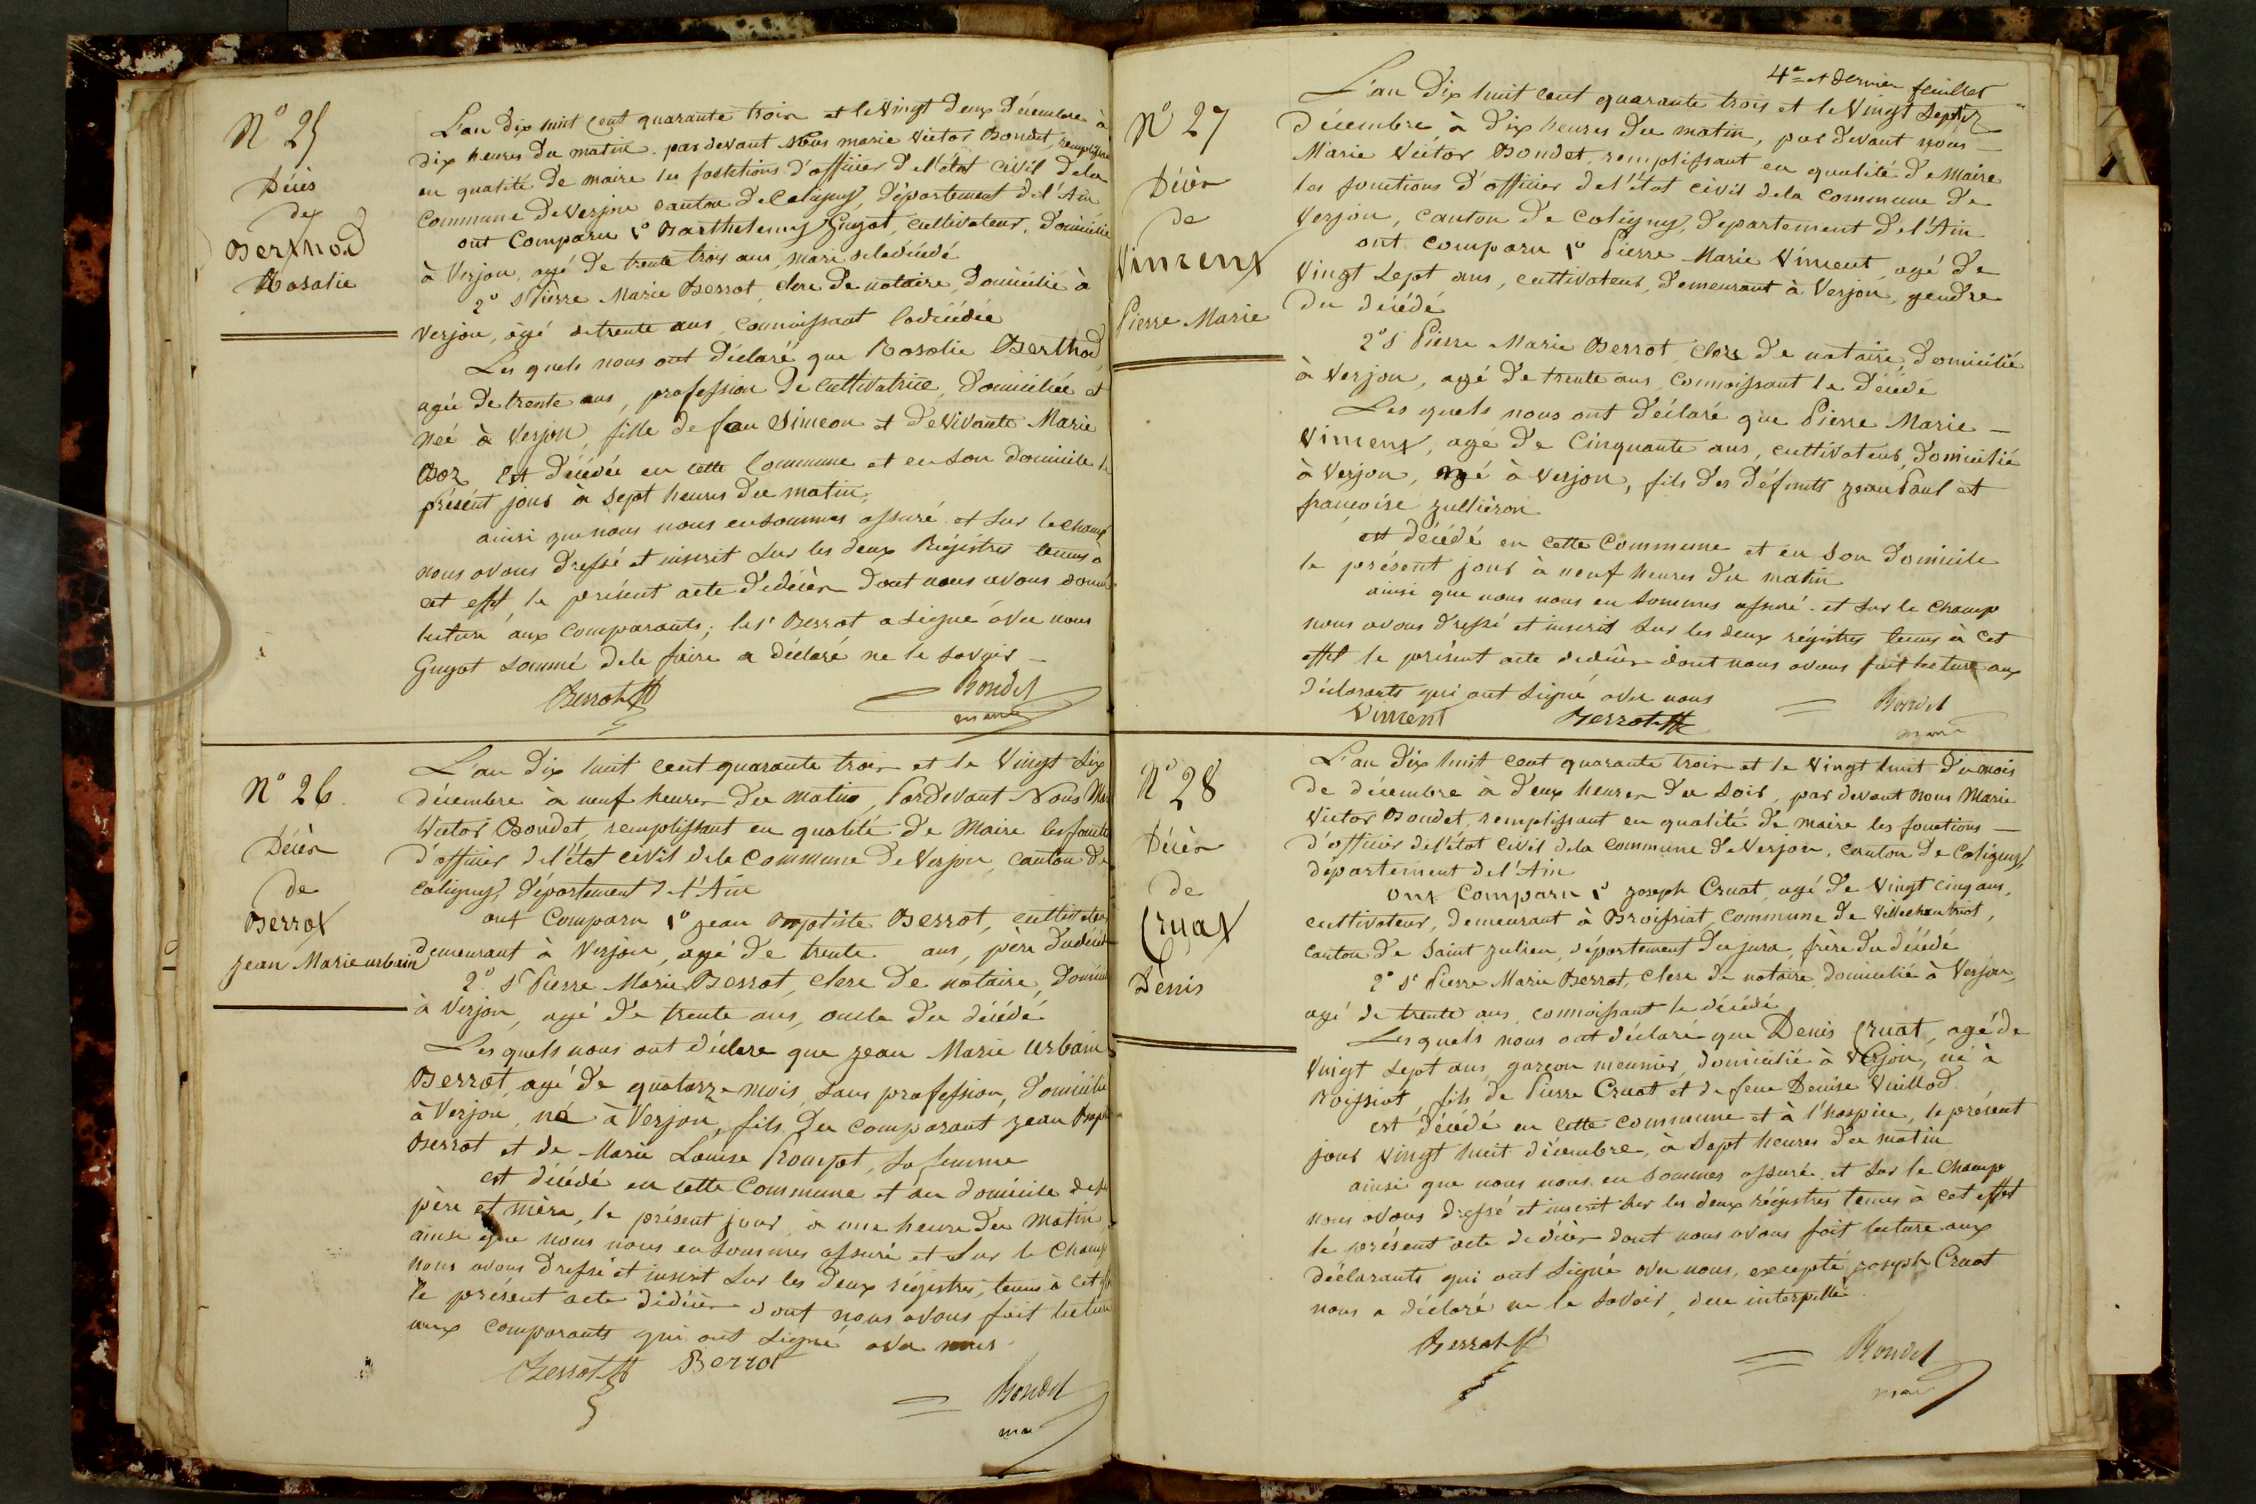 N° 25
Décès
de
Berthod
Rosalie
L'an dix huit cent quarante trois et le vingt deux décembre à
dix heures du matin. par devant Nous marie victor Bondet, remplissant
en qualité de maire les fonctions d'officier de l'état civil dela
Commune de Verjon canton de Coligny, département de l'Ain
ont Comparu 1° Barthelemy Guyot, cultivateur, domicilié
à Verjon, agé de trente trois ans, mari de la décédé
2° Sr Pierre Marie Berrot, clerc de notaire, domicilié à
Verjon, âgé de trente ans, connoissant la décédée
Les quels nous ont déclaré que Rosalie Berthod,
agée de trente ans, profession de cultivatrice, domiciliée et
née à Verjon, fille de feu Simeon et de vivante Marie
Boz est décédée en cette Commune et en son domicile le
présent jour à sept heures du matin,
ainsi que nous nous en sommes assuré et sur le champ
nous avons dressé et inscrit sur les deux Régistres tenus à
cet effet le présent acte de décès dont nous avons donné
lecture aux comparants; le sr Berrot a signé avec nous
Guyot sommé de le faire a déclaré ne le savoir —
Berrot Bondet
maire
N° 26.
Décès
de
Berrot
Jean Marie urbain
L'an dix huit cent quarante trois et le Vingt Six
décembre à neuf heures du matin, Pardevant Nous Marie
Victor Bondet, remplissant en qualité de Maire les fonctions
d'officier de l'état civil de la Commune de Verjon, canton de
Coligny, département de l'Ain
ont Comparu 1° Jean Baptiste Berrot, cultivateur
demeurant à Verjon, agé de trente ans, père du décédé
2° Sr Pierre Marie Berrot, clerc de notaire, domicilié
à Verjon, agé de trente ans, oncle du décédé
Les quels nous ont déclaré que Jean Marie Urbain
Berrot, agé de quatorze mois, sans profession, domicilié
à Verjon, né à Verjon, fils du comparant Jean Bapt
Berrot et de Marie Louise Rougot, sa femme
est décédé en cette Commune et au domicile de ses
père et mère, le présent jour à une heure du Matin
ainsi que nous nous en sommes assuré et sur le Champ
nous avons dressé et inscrit sur les deux régistres, tenus à cet effet
le présent acte de décès dont nous avons fait lecture
aux comparants qui ont signé avec nous.
Berrot Berrot
Bondet
maire
4e et dernier feuillet
N° 27
Décès
de
Vincent
Pierre Marie
L'an dix huit cent quarante trois et le Vingt Sept
décembre à dix heures du matin, par devant nous
Marie Victor Bondet, remplissant en qualité de Maire
les fonctions d'officier de l'état civil de la Commune de
Verjon, canton de Coligny, département de l'Ain
ont comparu 1° Pierre Marie Vincent, agé de
vingt sept ans, cultivateur, demeurant à Verjon, gendre
du décédé
2° Sr Pierre Marie Berrot, clerc de notaire, domicilié
à Verjon, agé de trente ans, connoissant le décédé
Les quels nous ont déclaré que Pierre Marie —
Vincent, agé de Cinquante ans, cultivateur, domicilié
à Verjon, né à Verjon, fils des défunts Jean Paul et
françoise Jullieron
est décédé en cette Commune et en son domicile
le présent jour à neuf heures du matin
ainsi que nous nous en sommes assuré et sur le champ
nous avons dressé et inscrit sur les deux régistres tenus à cet
effet le présent acte de décès dont nous avons fait lecture aux
déclarants qui ont signé avec nous
Vincent Berrot Bondet
maire
N° 28
Décès
de
Cruat
Denis
L'an dix huit cent quarante trois et le vingt huit du mois
de décembre à deux heures du soir, par devant nous Marie
Victor Bondet, remplissant en qualité de maire les fonctions —
d'officier de l'état civil de la Commune de Verjon, canton de Coligny,
département de l'Ain
ont Comparu 1° Joseph Cruat, agé de vingt cinq ans,
cultivateur, demeurant à Broissiat, Commune de Villechantriot,
canton de Saint Julien, département du Jura, frère du décédé
2° Sr Pierre Marie Berrot, clerc de notaire, domicilié à Verjon,
agé de trente ans, connoissant le décédé
Les quels nous ont déclaré que Denis Cruat, agé de
vingt sept ans, garçon meunier, domicilié à Verjon, né à
Broissiat, fils de Pierre Cruat et de feue Denise Vuillod
est décédé en cette commune et à l'hospice, le présent
jour vingt huit décembre, à Sept heures du matin
ainsi que nous nous en sommes assuré et sur le champ
nous avons dressé et inscrit sur les deux régistres tenus à cet effet
le présent acte de décès dont nous avons fait lecture aux
déclarants qui ont signé avec nous, excepté Joseph Cruat
nous a déclaré ne le savoir, de ce interpellé.
Berrot Bondet
maire